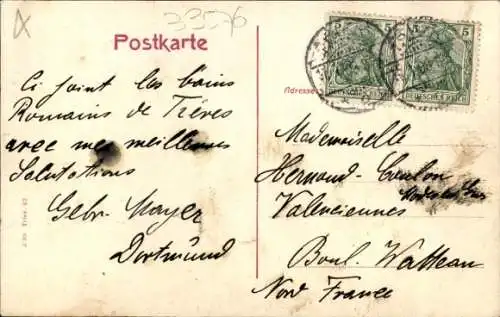 33576
Postkarte
Ci joint les bains
Romains de Trèves
avec mes meilleures
Salutations
Gebr. Mayer
Dortmund
Adresse
5 5
DEUTSCHES REICH DEUTSCHES REICH
Mademoiselle
Hernoud-Coulon
Valenciennes
Boul. Watteau
Nord France
Trier